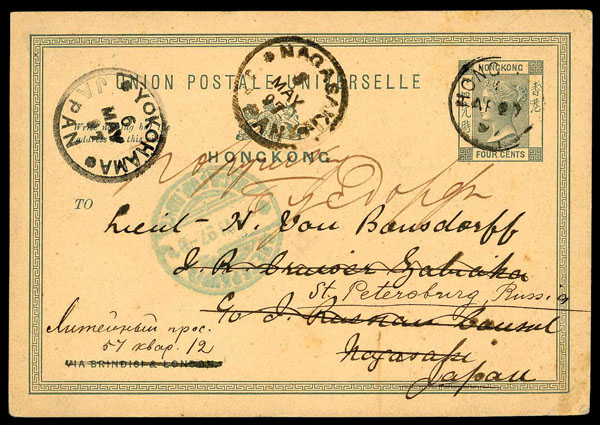 UNION POSTALE UNIVERSELLE
NAGASAKI
MAY
JAPAN
YOKOHAMA
6
MAY
JAPAN
HONGKONG
香港
FOUR CENTS
HONG
AP
Write nothing but the
address on this
HONGKONG
TO
Lieut- N. Von Bonsdorff
I. R. Cruiser Zabiaka
St. Petersburg, Russia
c/o I. Russian Consul
Nagasaki
Japan
Литейный прос.
57 квар. 12
VIA BRINDISI & LONDON.